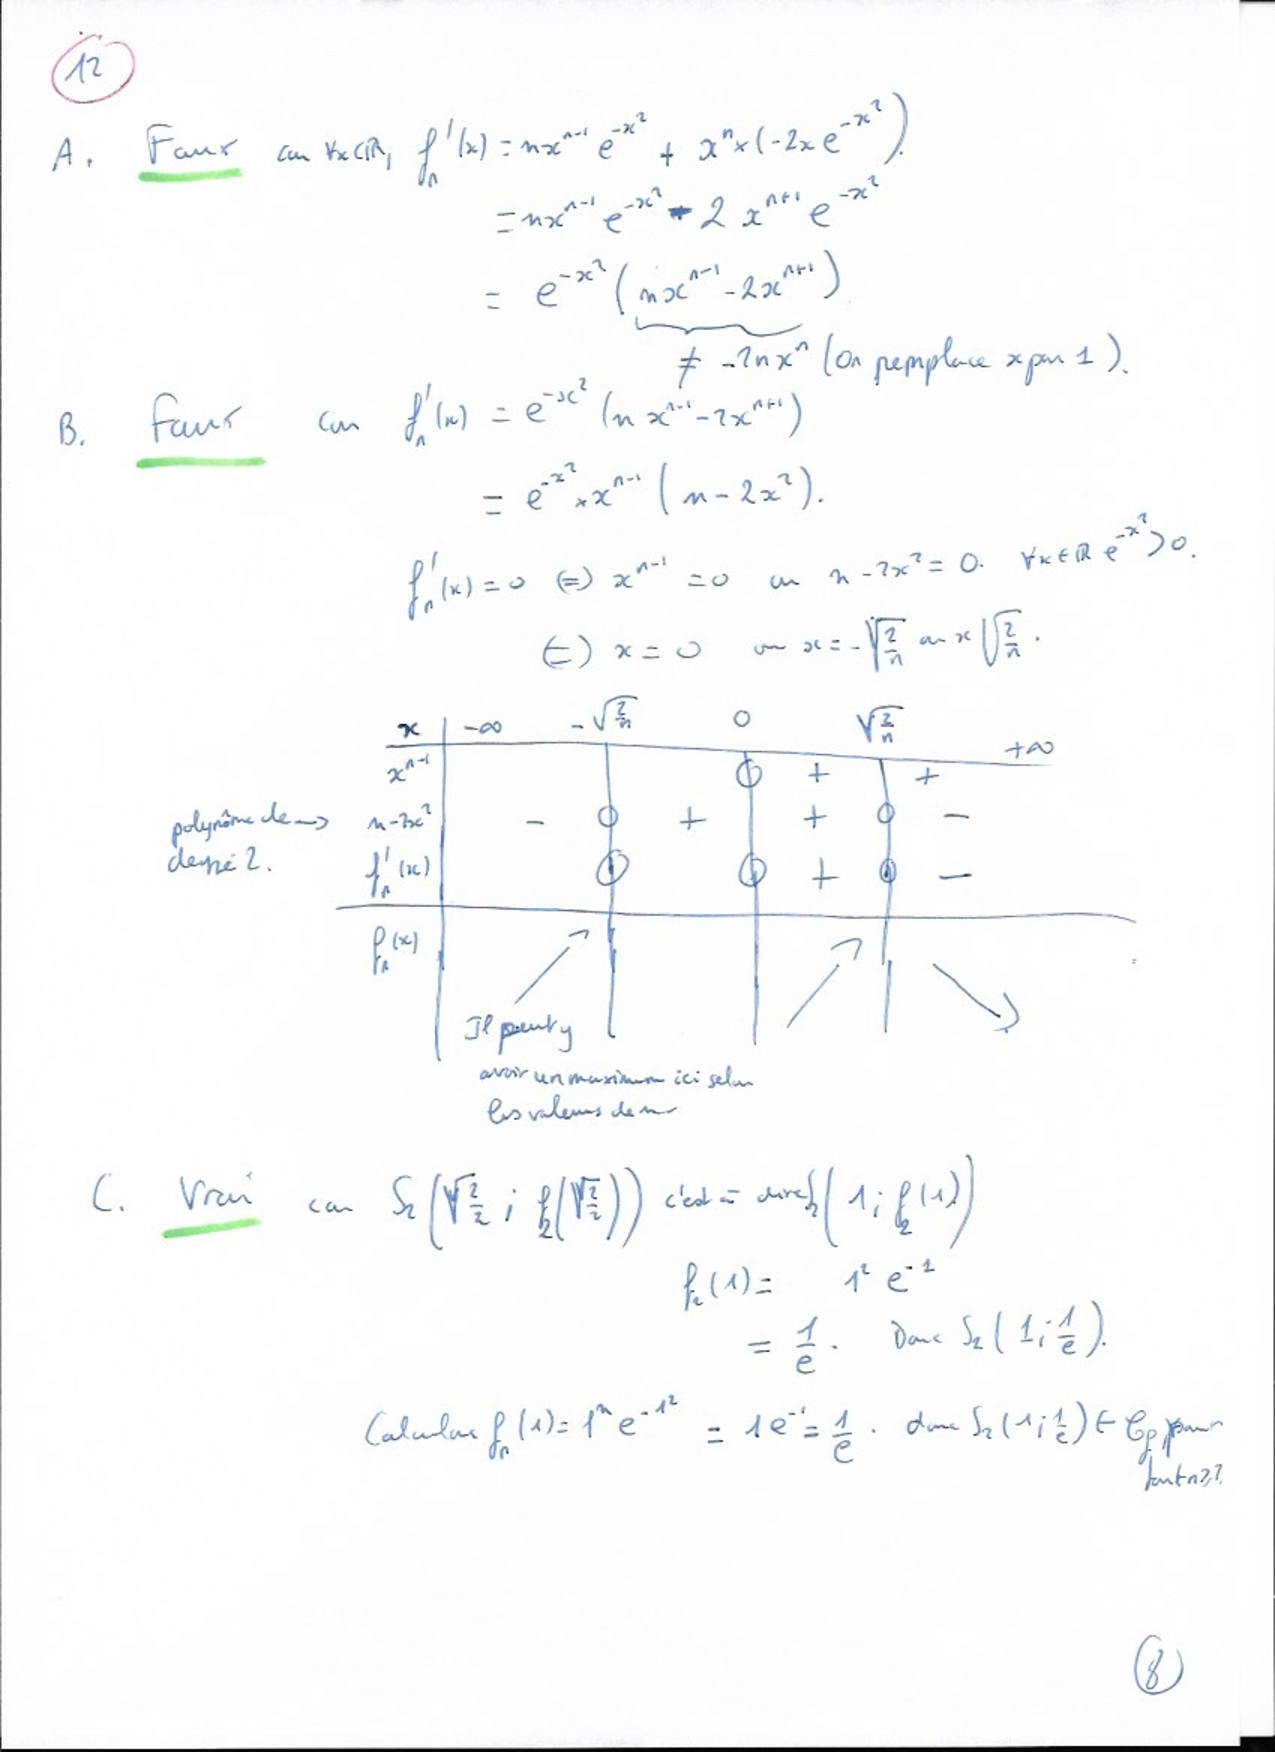 12
A. Faux car ∀x∈ℝ, fₙ'(x) = nxⁿ⁻¹ e^(-x²) + xⁿ × (-2x e^(-x²)).
= nxⁿ⁻¹ e^(-x²) - 2 xⁿ⁺¹ e^(-x²)
= e^(-x²) (nxⁿ⁻¹ - 2xⁿ⁺¹)
≠ -2nxⁿ (On remplace x par 1).
B. Faux car fₙ'(x) = e^(-x²) (n xⁿ⁻¹ - 2xⁿ⁺¹)
= e^(-x²) × xⁿ⁻¹ (n - 2x²).
fₙ'(x) = 0 (=) xⁿ⁻¹ = 0 ou n - 2x² = 0. ∀x∈ℝ e^(-x²) > 0.
(=) x = 0 ou x = -√(2/n) ou x √(2/n).
x -∞ -√(2/n) 0 √(2/n) +∞
xⁿ⁻¹ 0 + +
polynôme de → n-2x² - 0 + + 0 -
degré 2. fₙ'(x) 0 0 + 0 -
fₙ(x)
Il peut y
avoir un maximum ici selon
les valeurs de n
C. Vrai car S₂(√(2/2) ; f₂(√(2/2))) c'est à dire S₂(1 ; f₂(1))
f₂(1) = 1² e⁻¹
= 1/e. Donc S₂(1 ; 1/e).
Calculons fₙ(1) = 1ⁿ e^(-1²) = 1e⁻¹ = 1/e. donc S₂(1 ; 1/e) ∈ C_fₙ pour
tout n≥2.
8